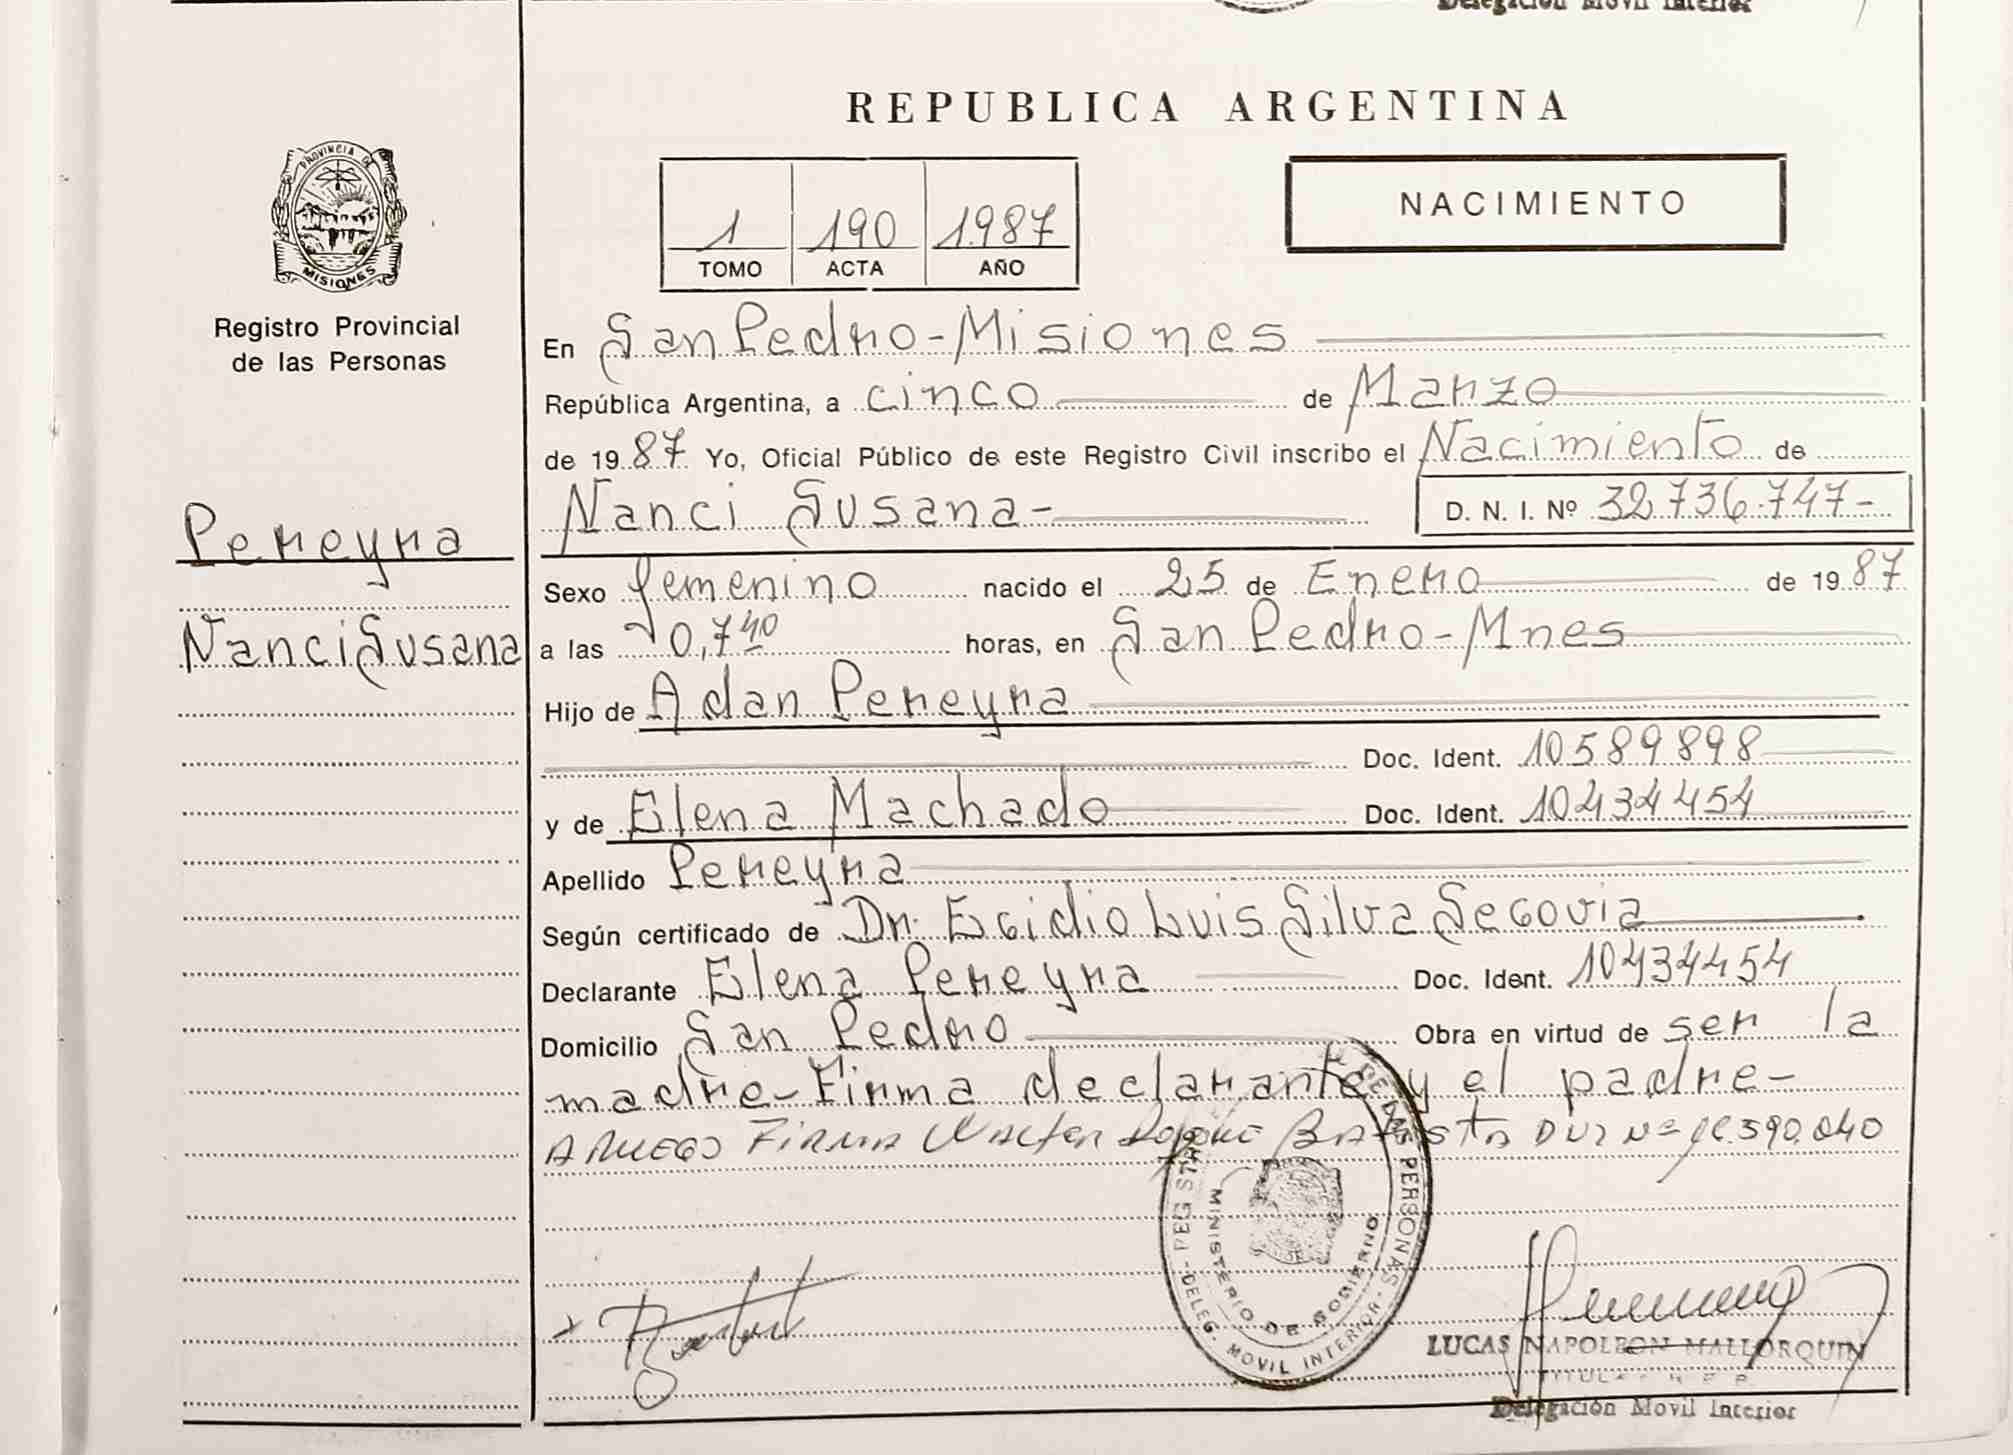 Delegación Movil Interior
REPUBLICA ARGENTINA
PROVINCIA DE
MISIONES
Registro Provincial
de las Personas
NACIMIENTO
1 190 1987
TOMO ACTA AÑO
En San Pedro-Misiones
República Argentina, a cinco de Marzo
de 1987 Yo, Oficial Público de este Registro Civil inscribo el Nacimiento de
Nanci Susana- D. N. I. Nº 32.736.747-
Pereyra
Nanci Susana
Sexo femenino nacido el 25 de Enero de 1987
a las 0,7 40 horas, en San Pedro-Mnes
Hijo de Adan Pereyra
Doc. Ident. 10589898
y de Elena Machado Doc. Ident. 10434454
Apellido Pereyra
Según certificado de Dr. Egidio Luis Silva Segovia
Declarante Elena Pereyra Doc. Ident. 10434454
Domicilio San Pedro Obra en virtud de ser la
madre-Firma declarante y el padre-
A RUEGO FIRMA Walter Batista DNI Nº 390.040
MINISTERIO DE GOBIERNO
DE LAS PERSONAS
DELEG. MOVIL INTERIOR
LUCAS NAPOLEON MALLORQUIN
TITULAR
Delegación Movil Interior